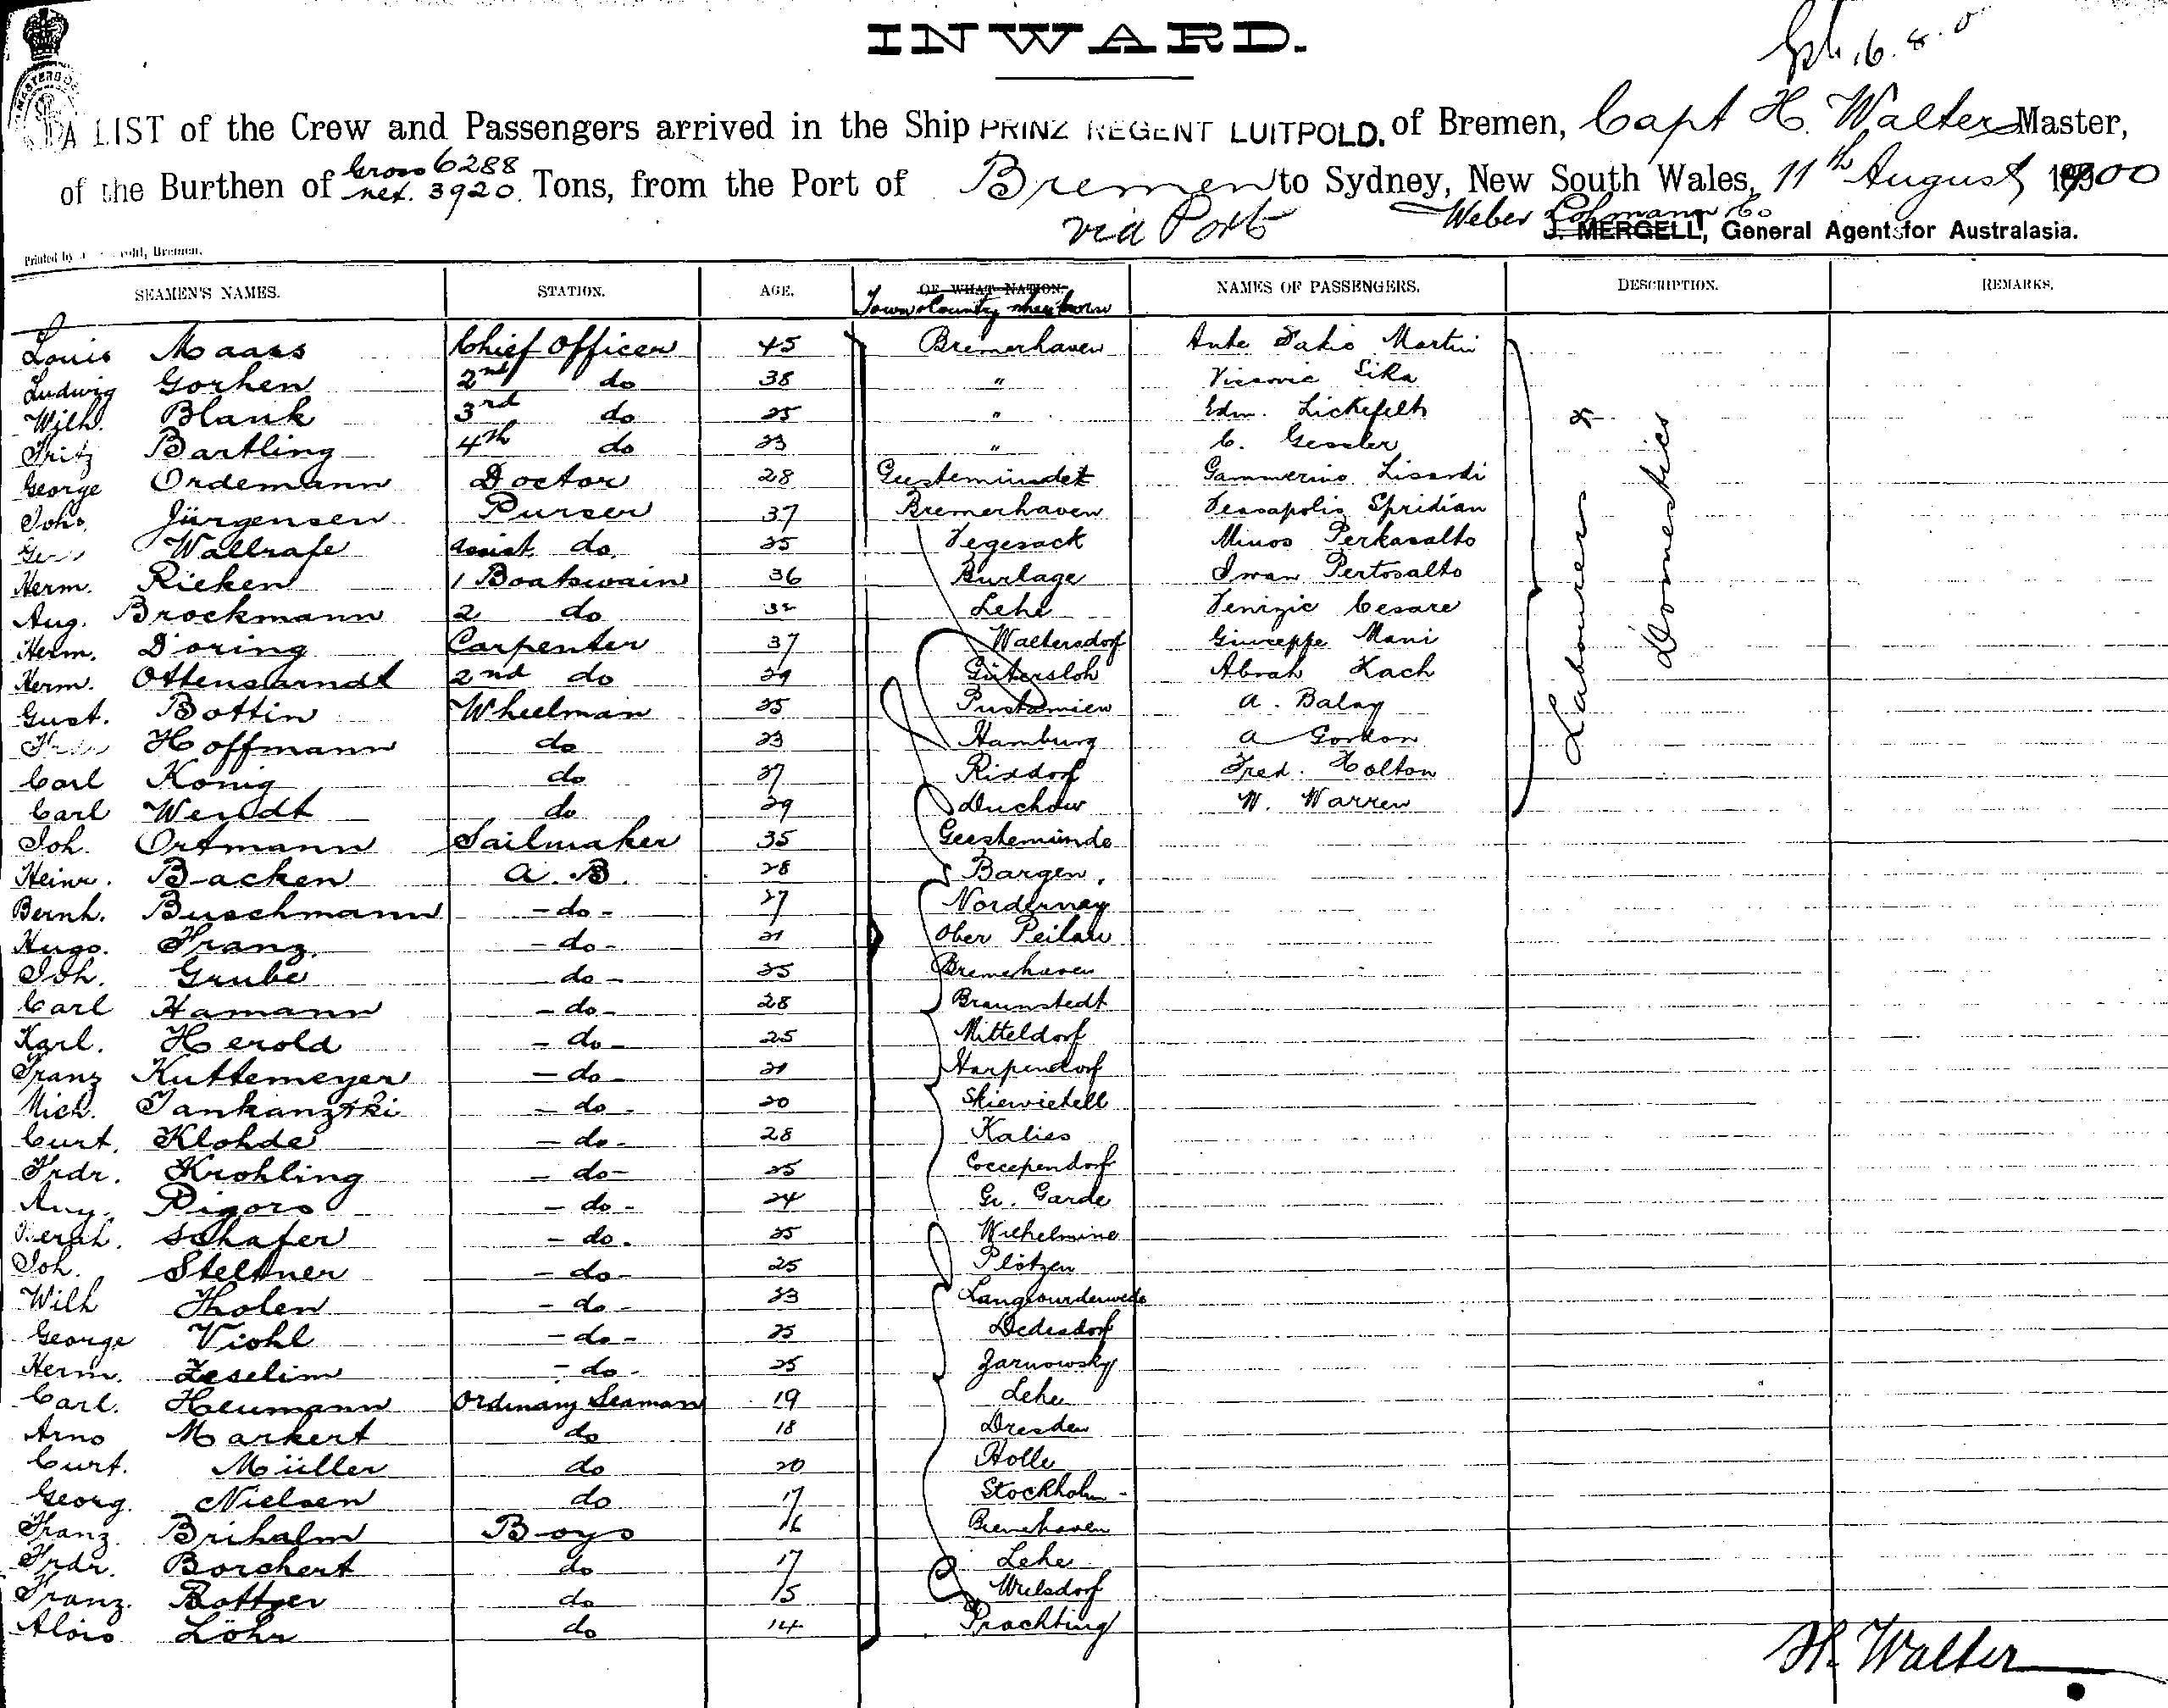 INWARD.
A LIST of the Crew and Passengers arrived in the Ship PRINZ REGENT LUITPOLD. of Bremen, Capt H. Walter Master,
of the Burthen of Gross 6288 net. 3920. Tons, from the Port of Bremen to Sydney, New South Wales, 11th August 1900
via Ports Weber Lohmann & Co
J. MERGELL, General Agents for Australasia.
Printed by Bremen.
SEAMEN'S NAMES. STATION. AGE. OF WHAT NATION. NAMES OF PASSENGERS. DESCRIPTION. REMARKS.
Town & Country where born
Louis Maass Chief Officer 45 Bremerhaven Ante Martin
Ludwig Gorhen 2nd do 38 " Sika
Wilh. Blank 3rd do 25 " Edm. Lickefelt
Fritz Bartling 4th do 23 " C. Gessler
George Ordemann Doctor 28 Gammerino Lisardi
Joh. Jürgensen Purser 37 Bremerhaven Spridian
Wallrafe Assist. do 25 Vegesack Minos Perkasalto
Herm. Rieken 1 Boatswain 36 Burlage Iwan Pertosalto
Aug. Brockmann 2 do 32 Lehe Cesare
Herm. Döring Carpenter 37 Waltersdorf Giuseppe Mani
Herm. Ottensarndt 2nd do 29 Gütersloh Abrah Kach
Gust. Bottin Wheelman 25 Pustamien A. Balay
Hoffmann do 23 Hamburg A Gordon
Carl König do 27 Rixdorf Fred. Holton
Carl Wendt do 29 Duchow W. Warren
Labourers & Domestics
Joh. Ortmann Sailmaker 35 Geestemünde
Heinr. Backen A. B. 28 Bargen.
Bernh. Buschmann - do - 27 Nordernay
Hugo. Franz. - do - 21 Ober Peilau
Joh. Grube - do - 25 Bremehaven
Carl Hamann - do - 28 Braunstedt
Karl. Herold - do - 25 Mitteldorf
Franz Kuttemeyer - do - 21 Harpendorf
Mich. Jankanztki - do - 20 Skierwietell
Curt. Klohde - do - 28 Kalies
Frdr. Krohling - do - 25
Aug. Pigors - do - 24 Gr. Garde
Schafer - do - 25 Wilhelmine
Joh. Steltner - do - 25 Plötzen
Wilh Tholen - do - 23
George Viohl - do - 25 Dedesdorf
Herm. Zeselim - do - 25 Jarnowsky
Carl. Heumann Ordinary Seaman 19 Lehe
Arno Markert do 18 Dresden
Curt. Müller do 20 Holle
Georg. Nielsen do 17 Stockholm -
Franz. Brihalm Boys 16 Bremehaven
Frdr. Borchert do 17 Lehe
Franz. Bottger do 15 Wulsdorf
Alois Löhr do 14 Prachting
H. Walter